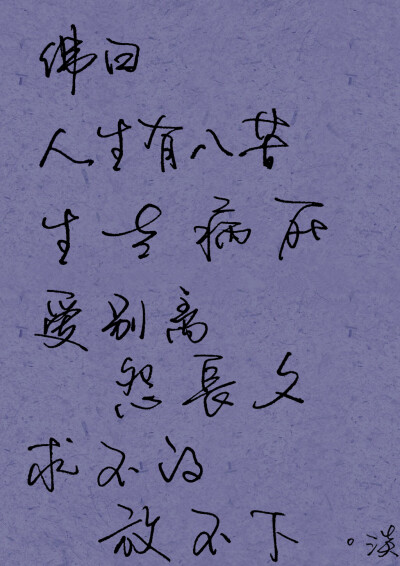 佛曰
人生有八苦
生老病死
爱别离
怨長久
求不得
放不下 。淡